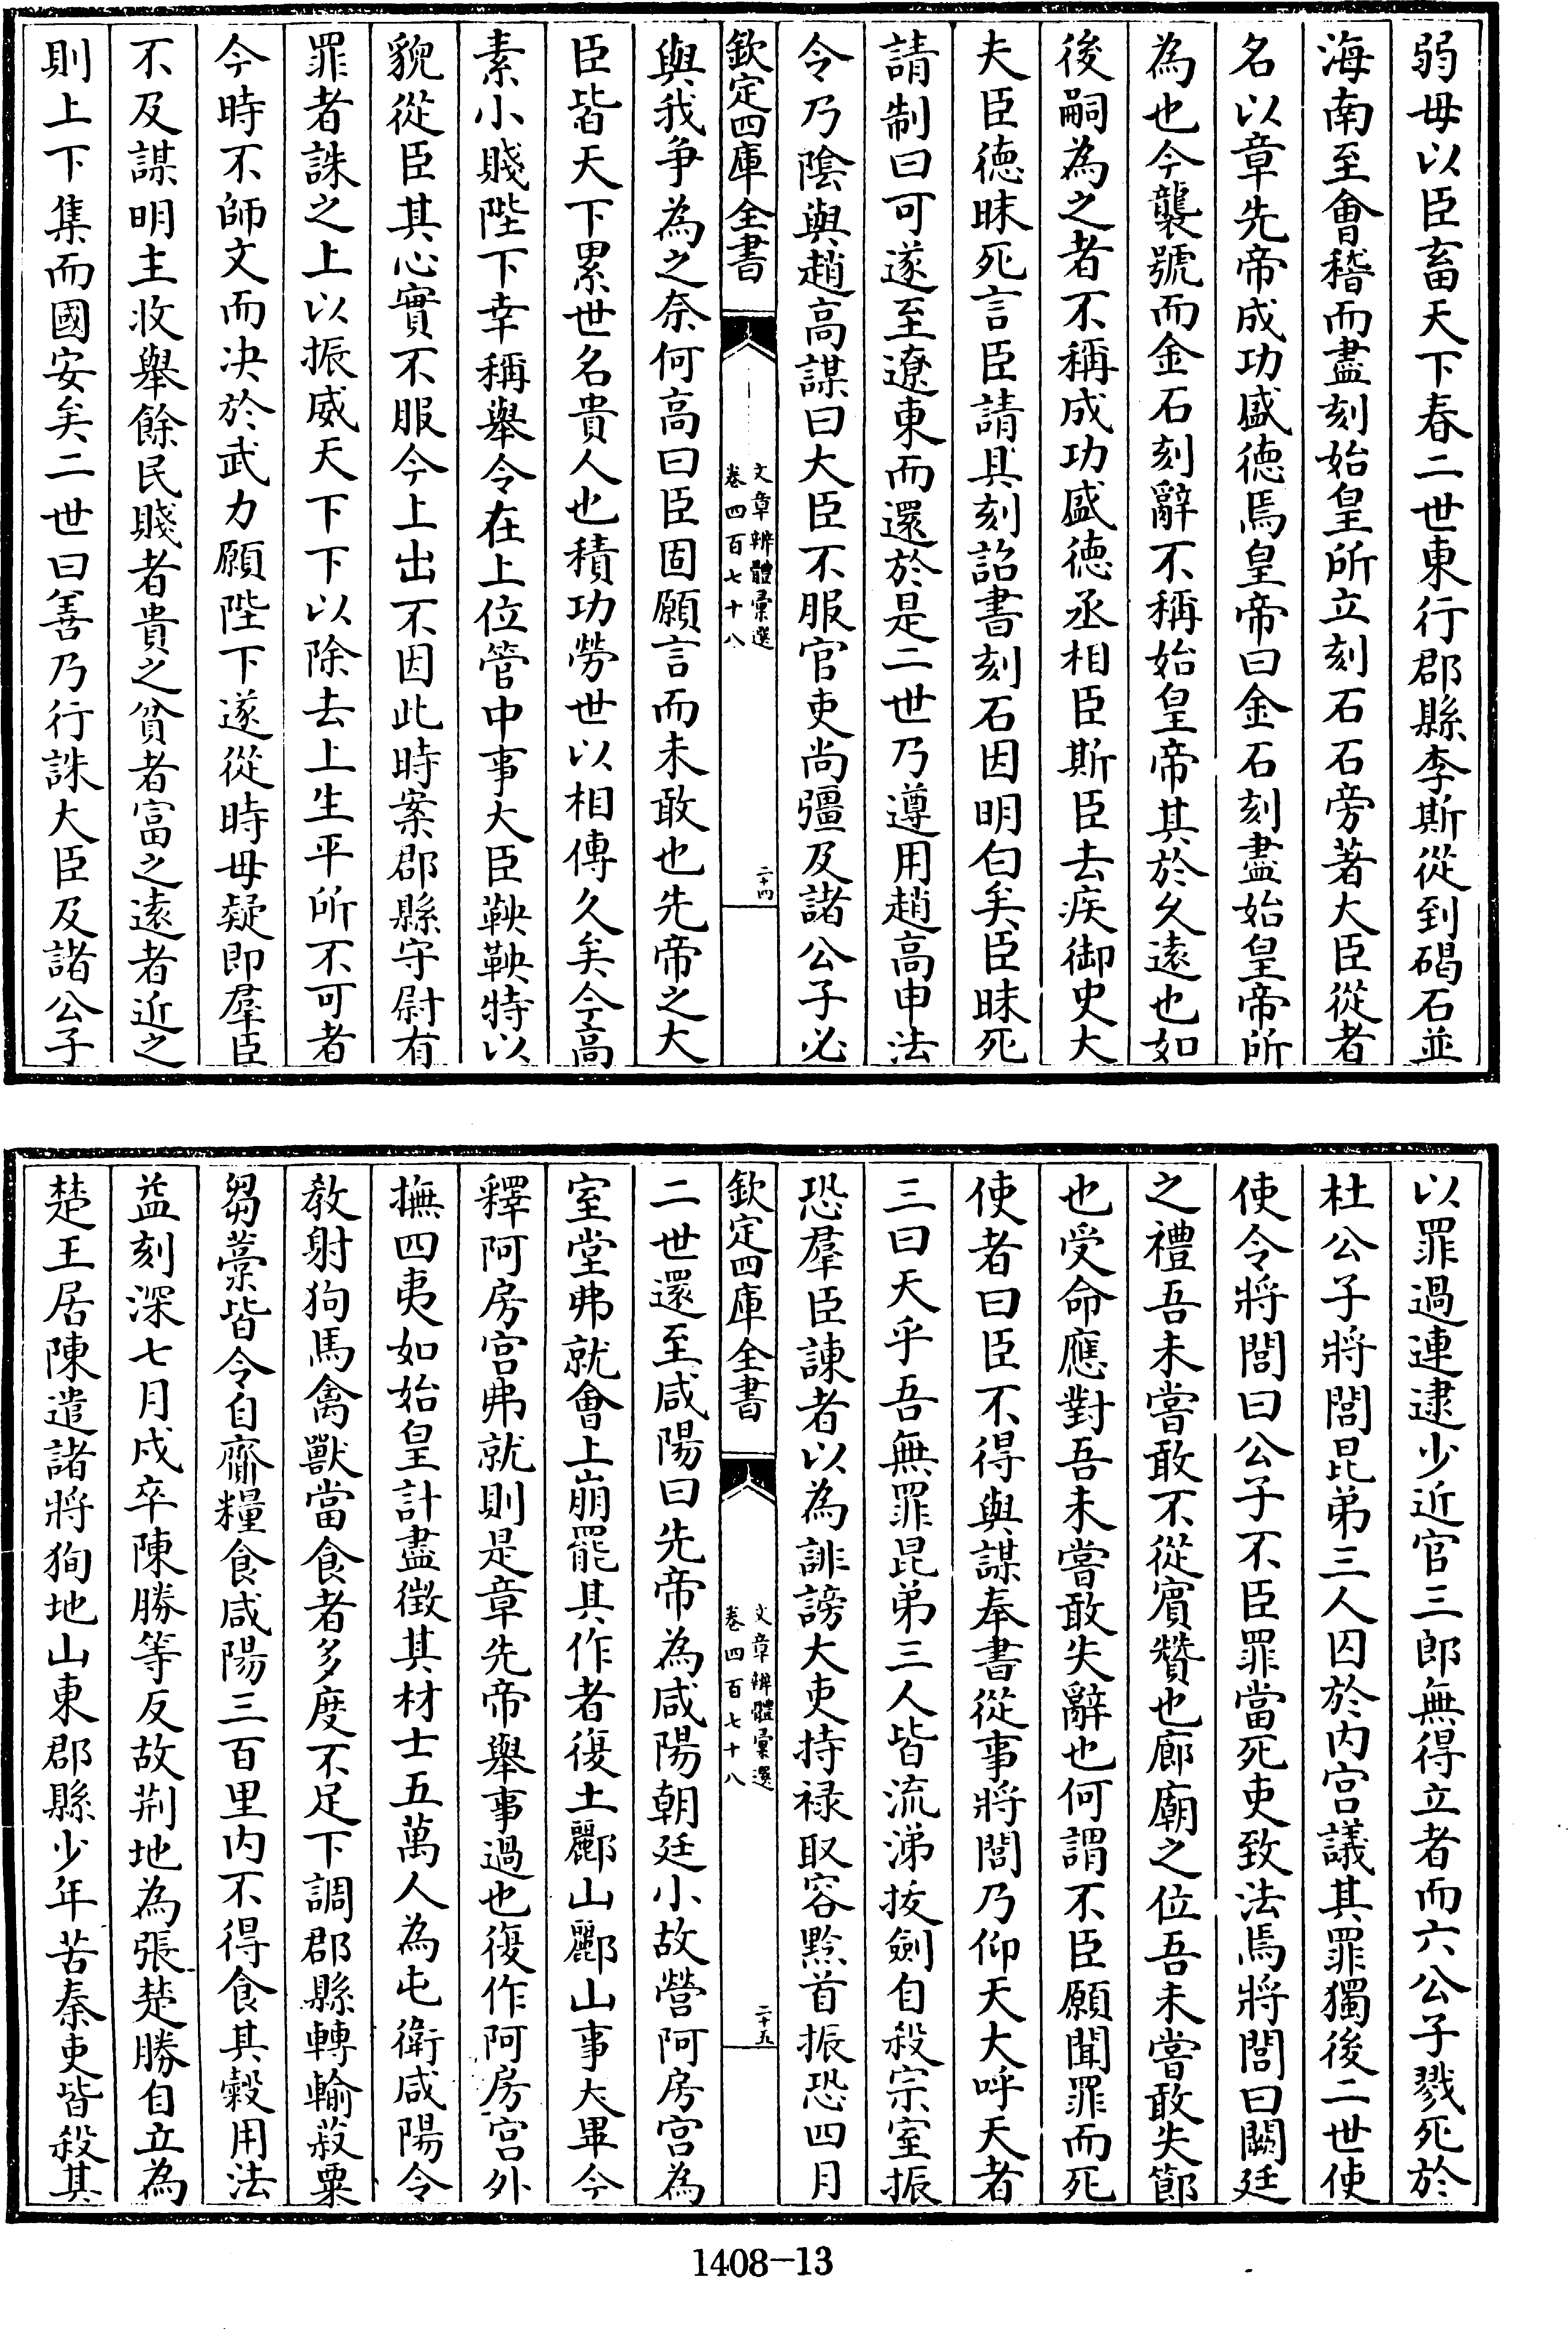 弱毋以臣畜天下春二世東行郡縣李斯從到碣石並
海南至會稽而盡刻始皇所立刻石石旁著大臣從者
名以章先帝成功盛徳焉皇帝曰金石刻盡始皇帝所
為也今襲號而金石刻辭不稱始皇帝其於久遠也如
後嗣為之者不稱成功盛徳丞相臣斯臣去疾御史大
夫臣徳昧死言臣請具刻詔書刻石因明白矣臣昧死
請制曰可遂至遼東而還於是二世乃遵用趙高申法
令乃陰與趙高謀曰大臣不服官吏尚彊及諸公子必
欽定四庫全書
文章辨體彙選
卷四百七十八
二十四
與我爭為之奈何高曰臣固願言而未敢也先帝之大
臣皆天下累世名貴人也積功勞世以相傳久矣今髙
素小賤陛下幸稱舉令在上位管中事大臣鞅鞅特以
貌從臣其心實不服今上出不因此時案郡縣守尉有
罪者誅之上以振威天下下以除去上生平所不可者
今時不師文而决於武力願陛下遂從時毋疑即羣臣
不及謀明主收舉餘民賤者貴之貧者富之逺者近之
則上下集而國安矣二世曰善乃行誅大臣及諸公子
以罪過連逮少近官三郎無得立者而六公子戮死於
杜公子將閭昆弟三人囚於内宫議其罪獨後二世使
使令將閭曰公子不臣罪當死吏致法焉將閭曰闕廷
之禮吾未嘗敢不從賓贊也廊廟之位吾未嘗敢失節
也受命應對吾未嘗敢失辭也何謂不臣願聞罪而死
使者曰臣不得與謀奉書從事將閭乃仰天大呼天者
三曰天乎吾無罪昆弟三人皆流涕抜劍自殺宗室振
恐羣臣諫者以為誹謗大吏持禄取容黔首振恐四月
欽定四庫全書
文章辨體彙選
卷四百七十八
二十五
二世還至咸陽曰先帝為咸陽朝廷小故營阿房宫為
室堂弗就會上崩罷其作者復土酈山酈山事大畢今
釋阿房宫弗就則是章先帝舉事過也復作阿房宫外
撫四夷如始皇計盡徴其材士五萬人為屯衛咸陽令
教射狗馬禽獸當食者多度不足下調郡縣轉輸菽粟
芻藁皆令自齎糧食咸陽三百里内不得食其穀用法
益刻深七月戍卒陳勝等反故荆地為張楚勝自立為
楚王居陳遣諸將狥地山東郡縣少年苦秦吏皆殺其
1408-13